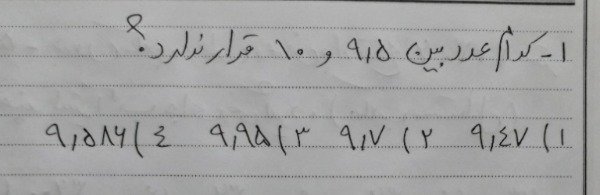 ۱- کدام عدد بین ۹,۵ و ۱۰ قرار ندارد؟
۱) ۹,۴۷ ۲) ۹,۷ ۳) ۹,۹۵ ۴) ۹,۵۸۶